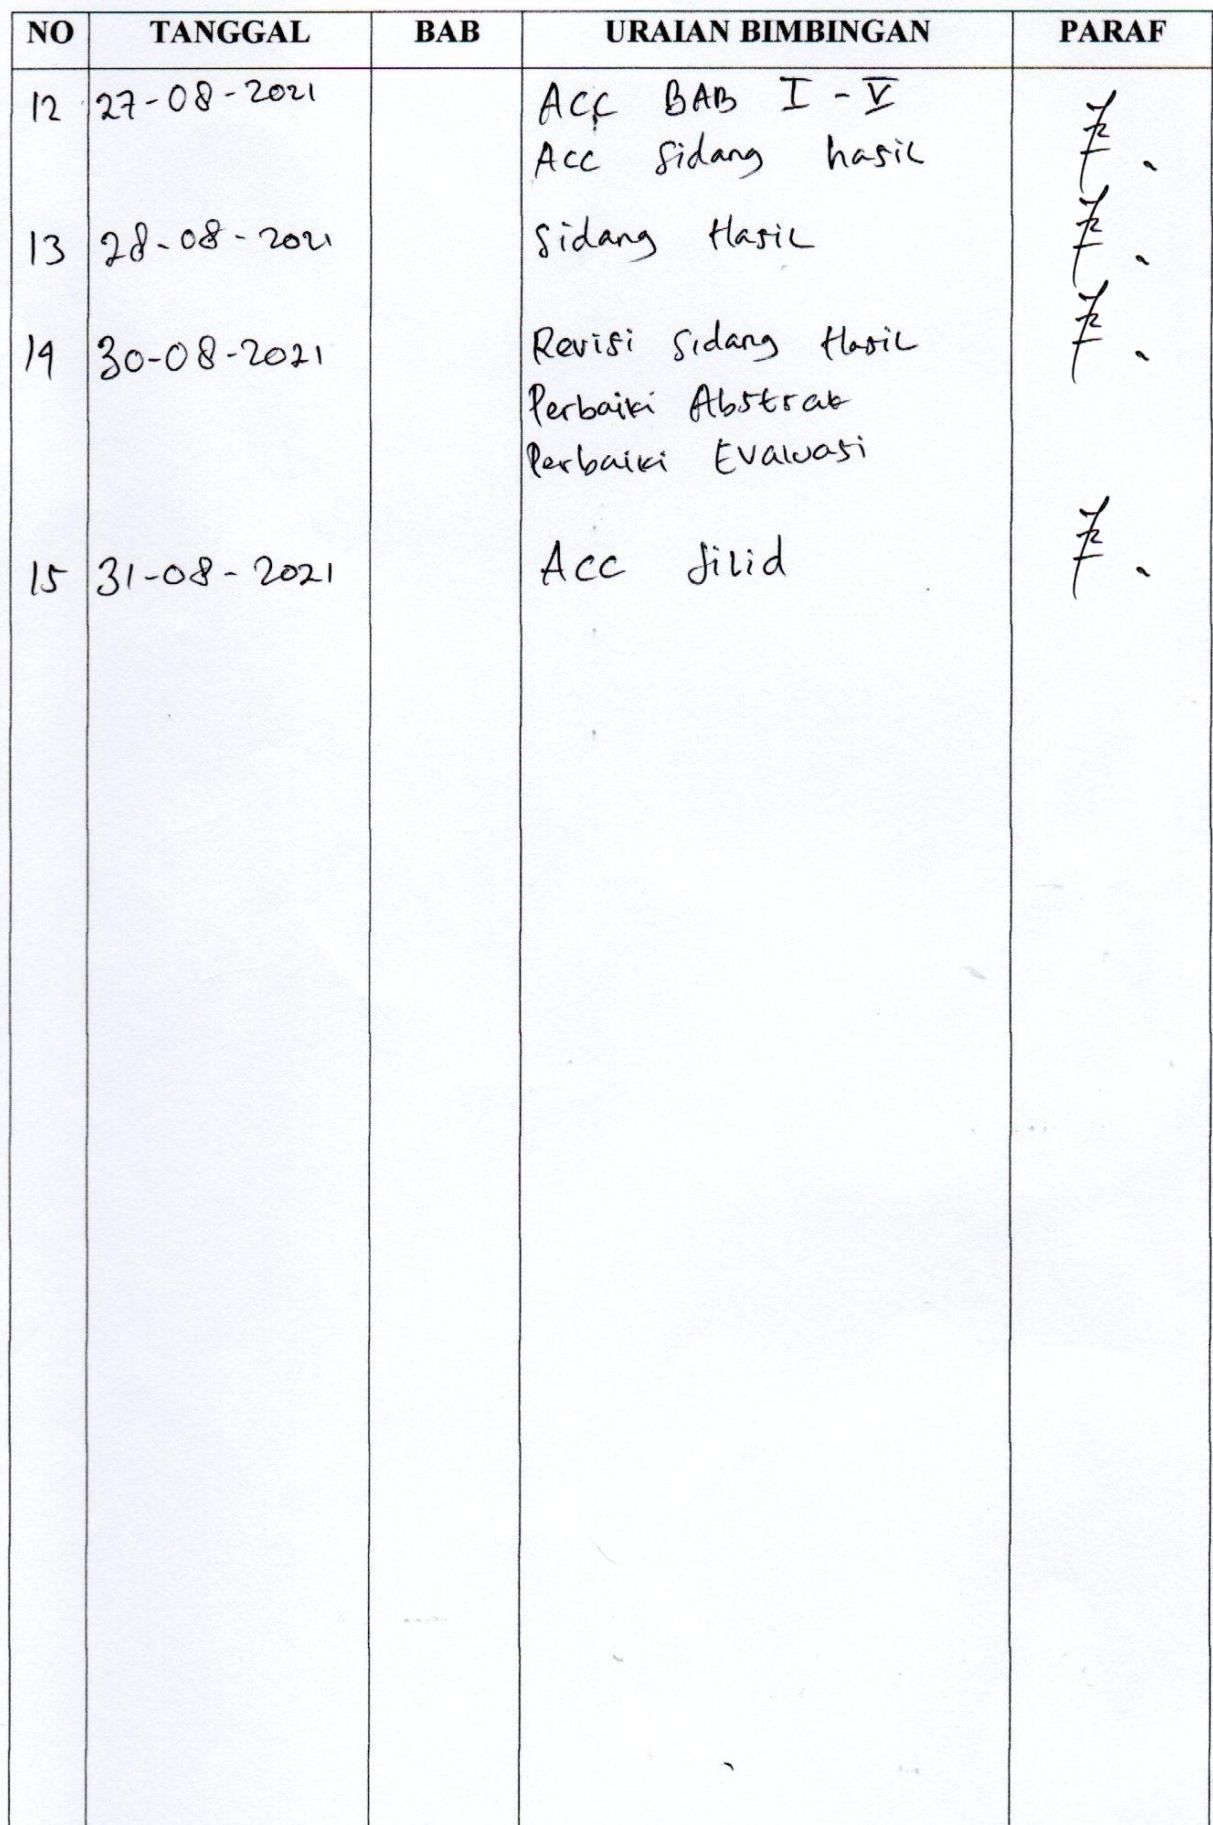 NO TANGGAL BAB URAIAN BIMBINGAN PARAF
12 27-08-2021 Acc BAB I - V
Acc Sidang hasil
13 28-08-2021 Sidang Hasil
14 30-08-2021 Revisi Sidang Hasil
Perbaiki Abstrak
Perbaiki Evaluasi
15 31-08-2021 Acc Jilid